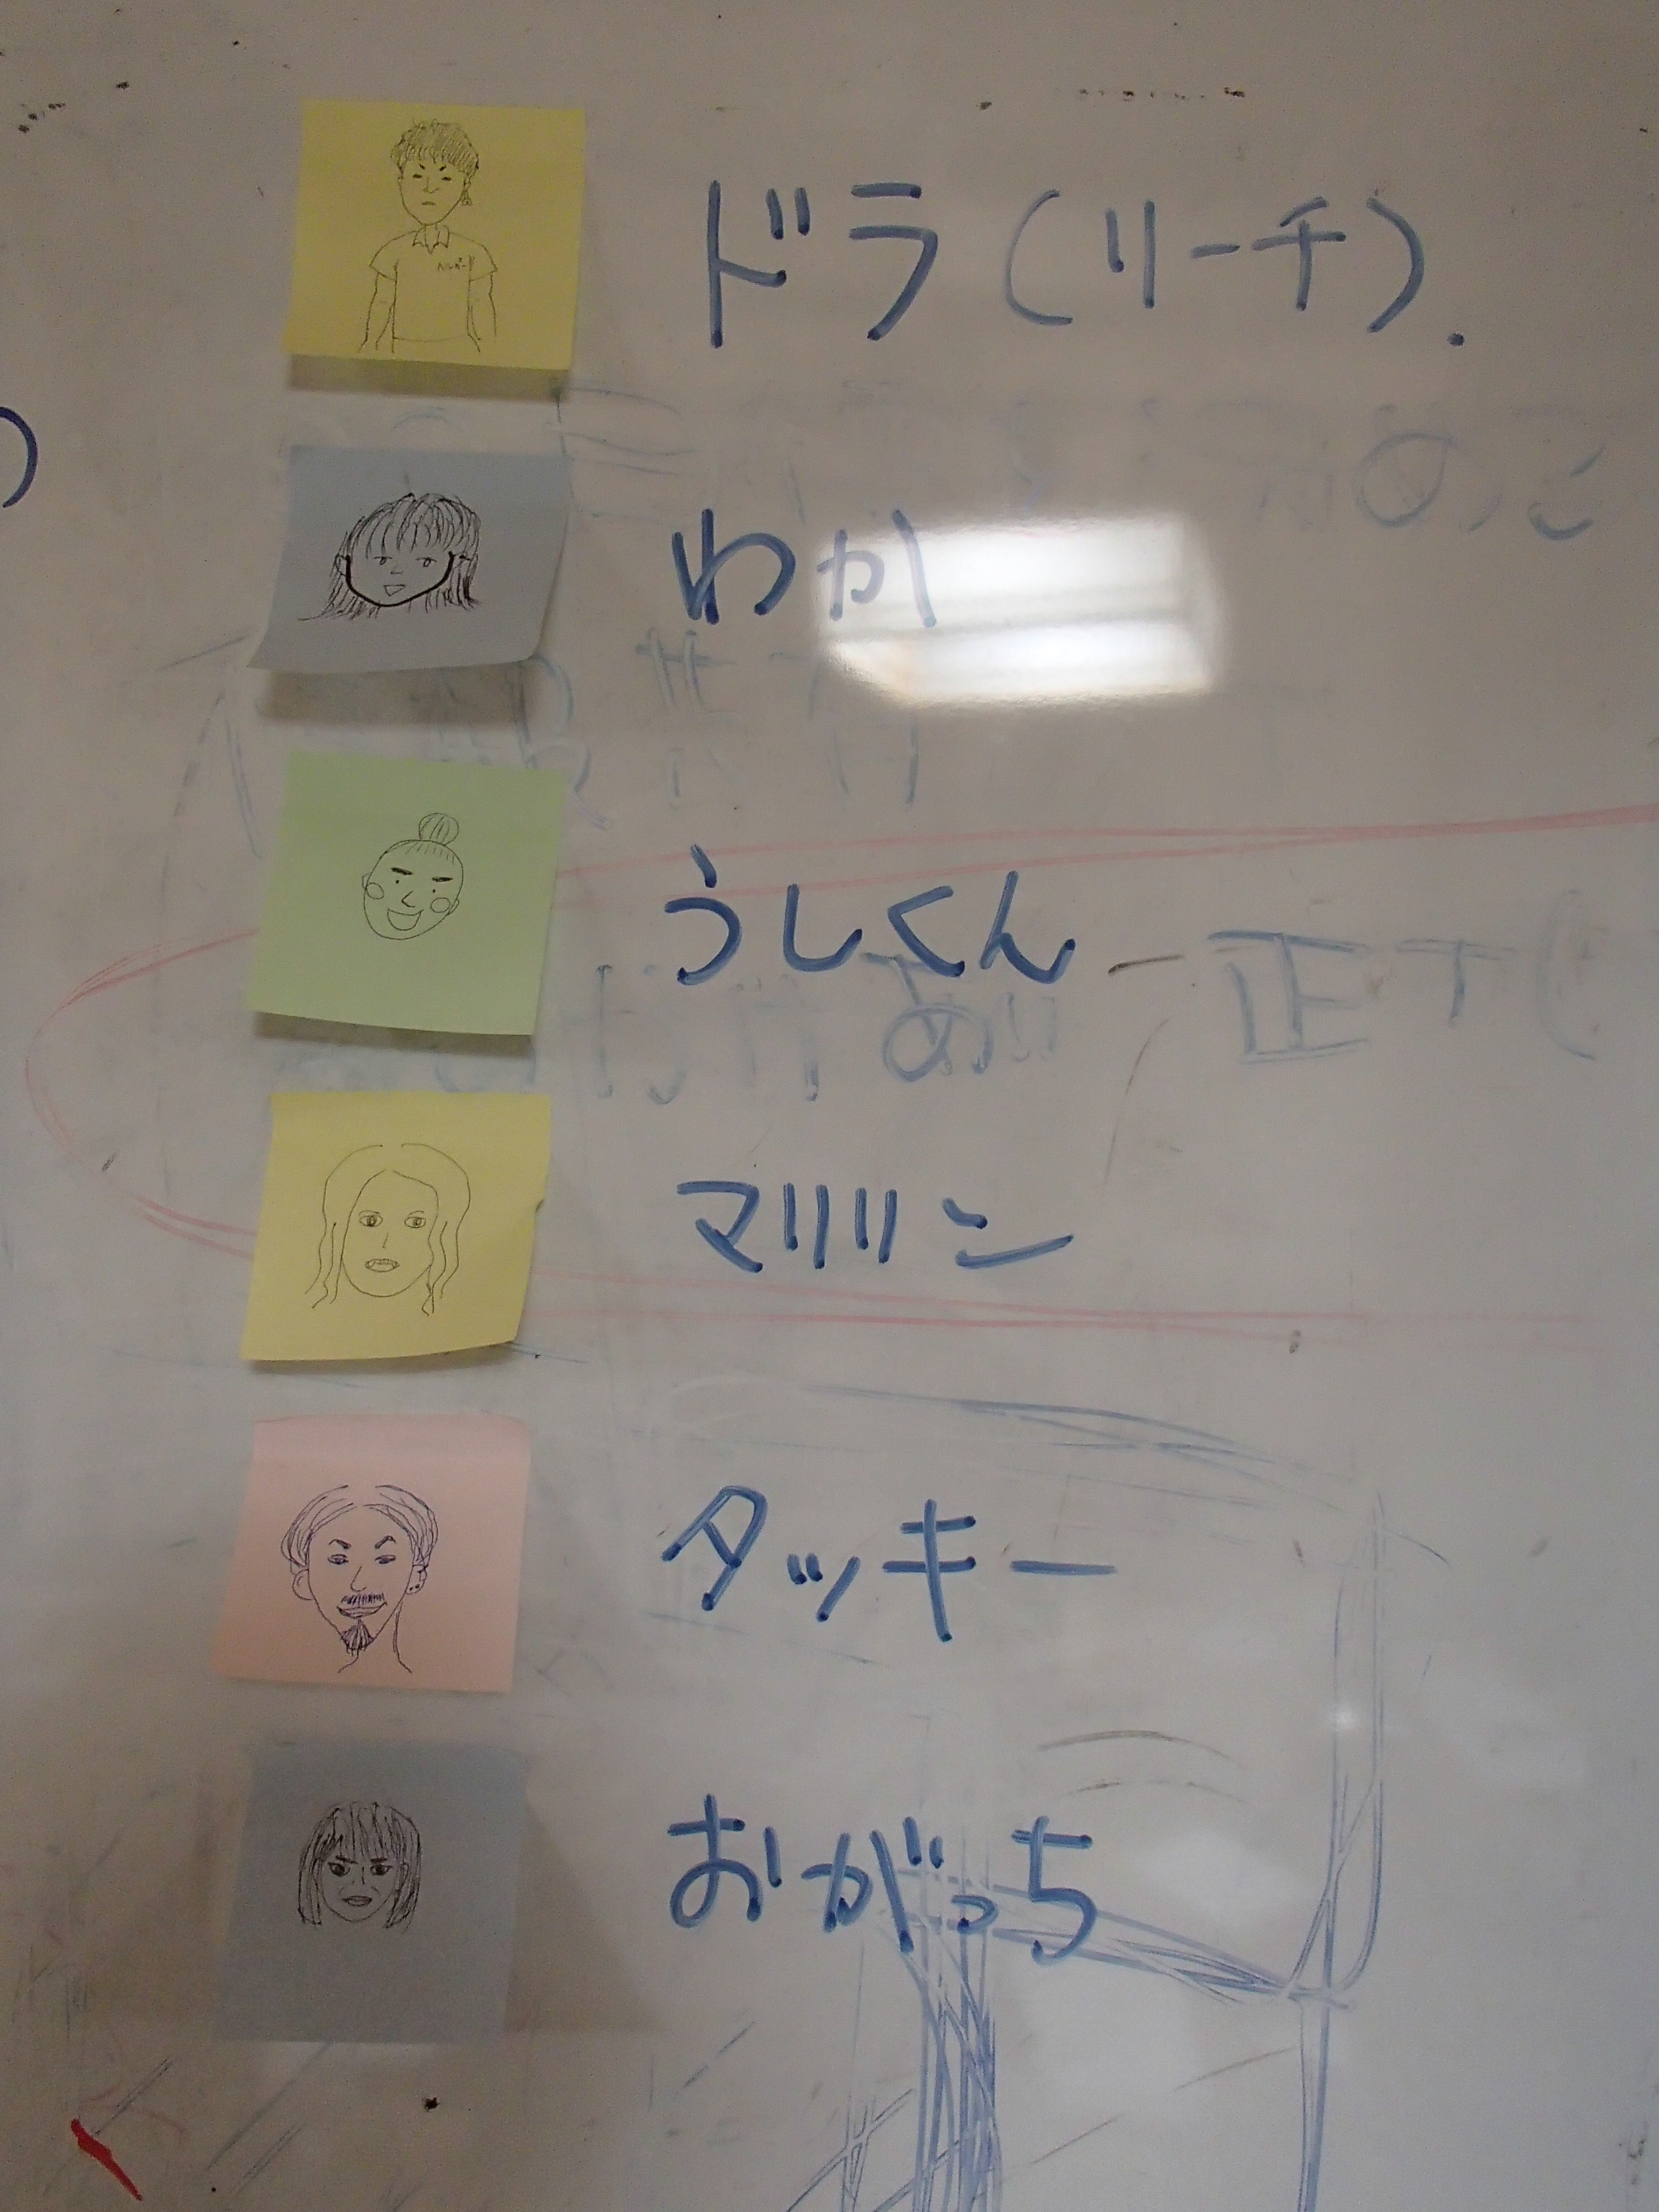 ドラ(リーチ).
わか
うしくん
マリリン
タッキー
おがっち